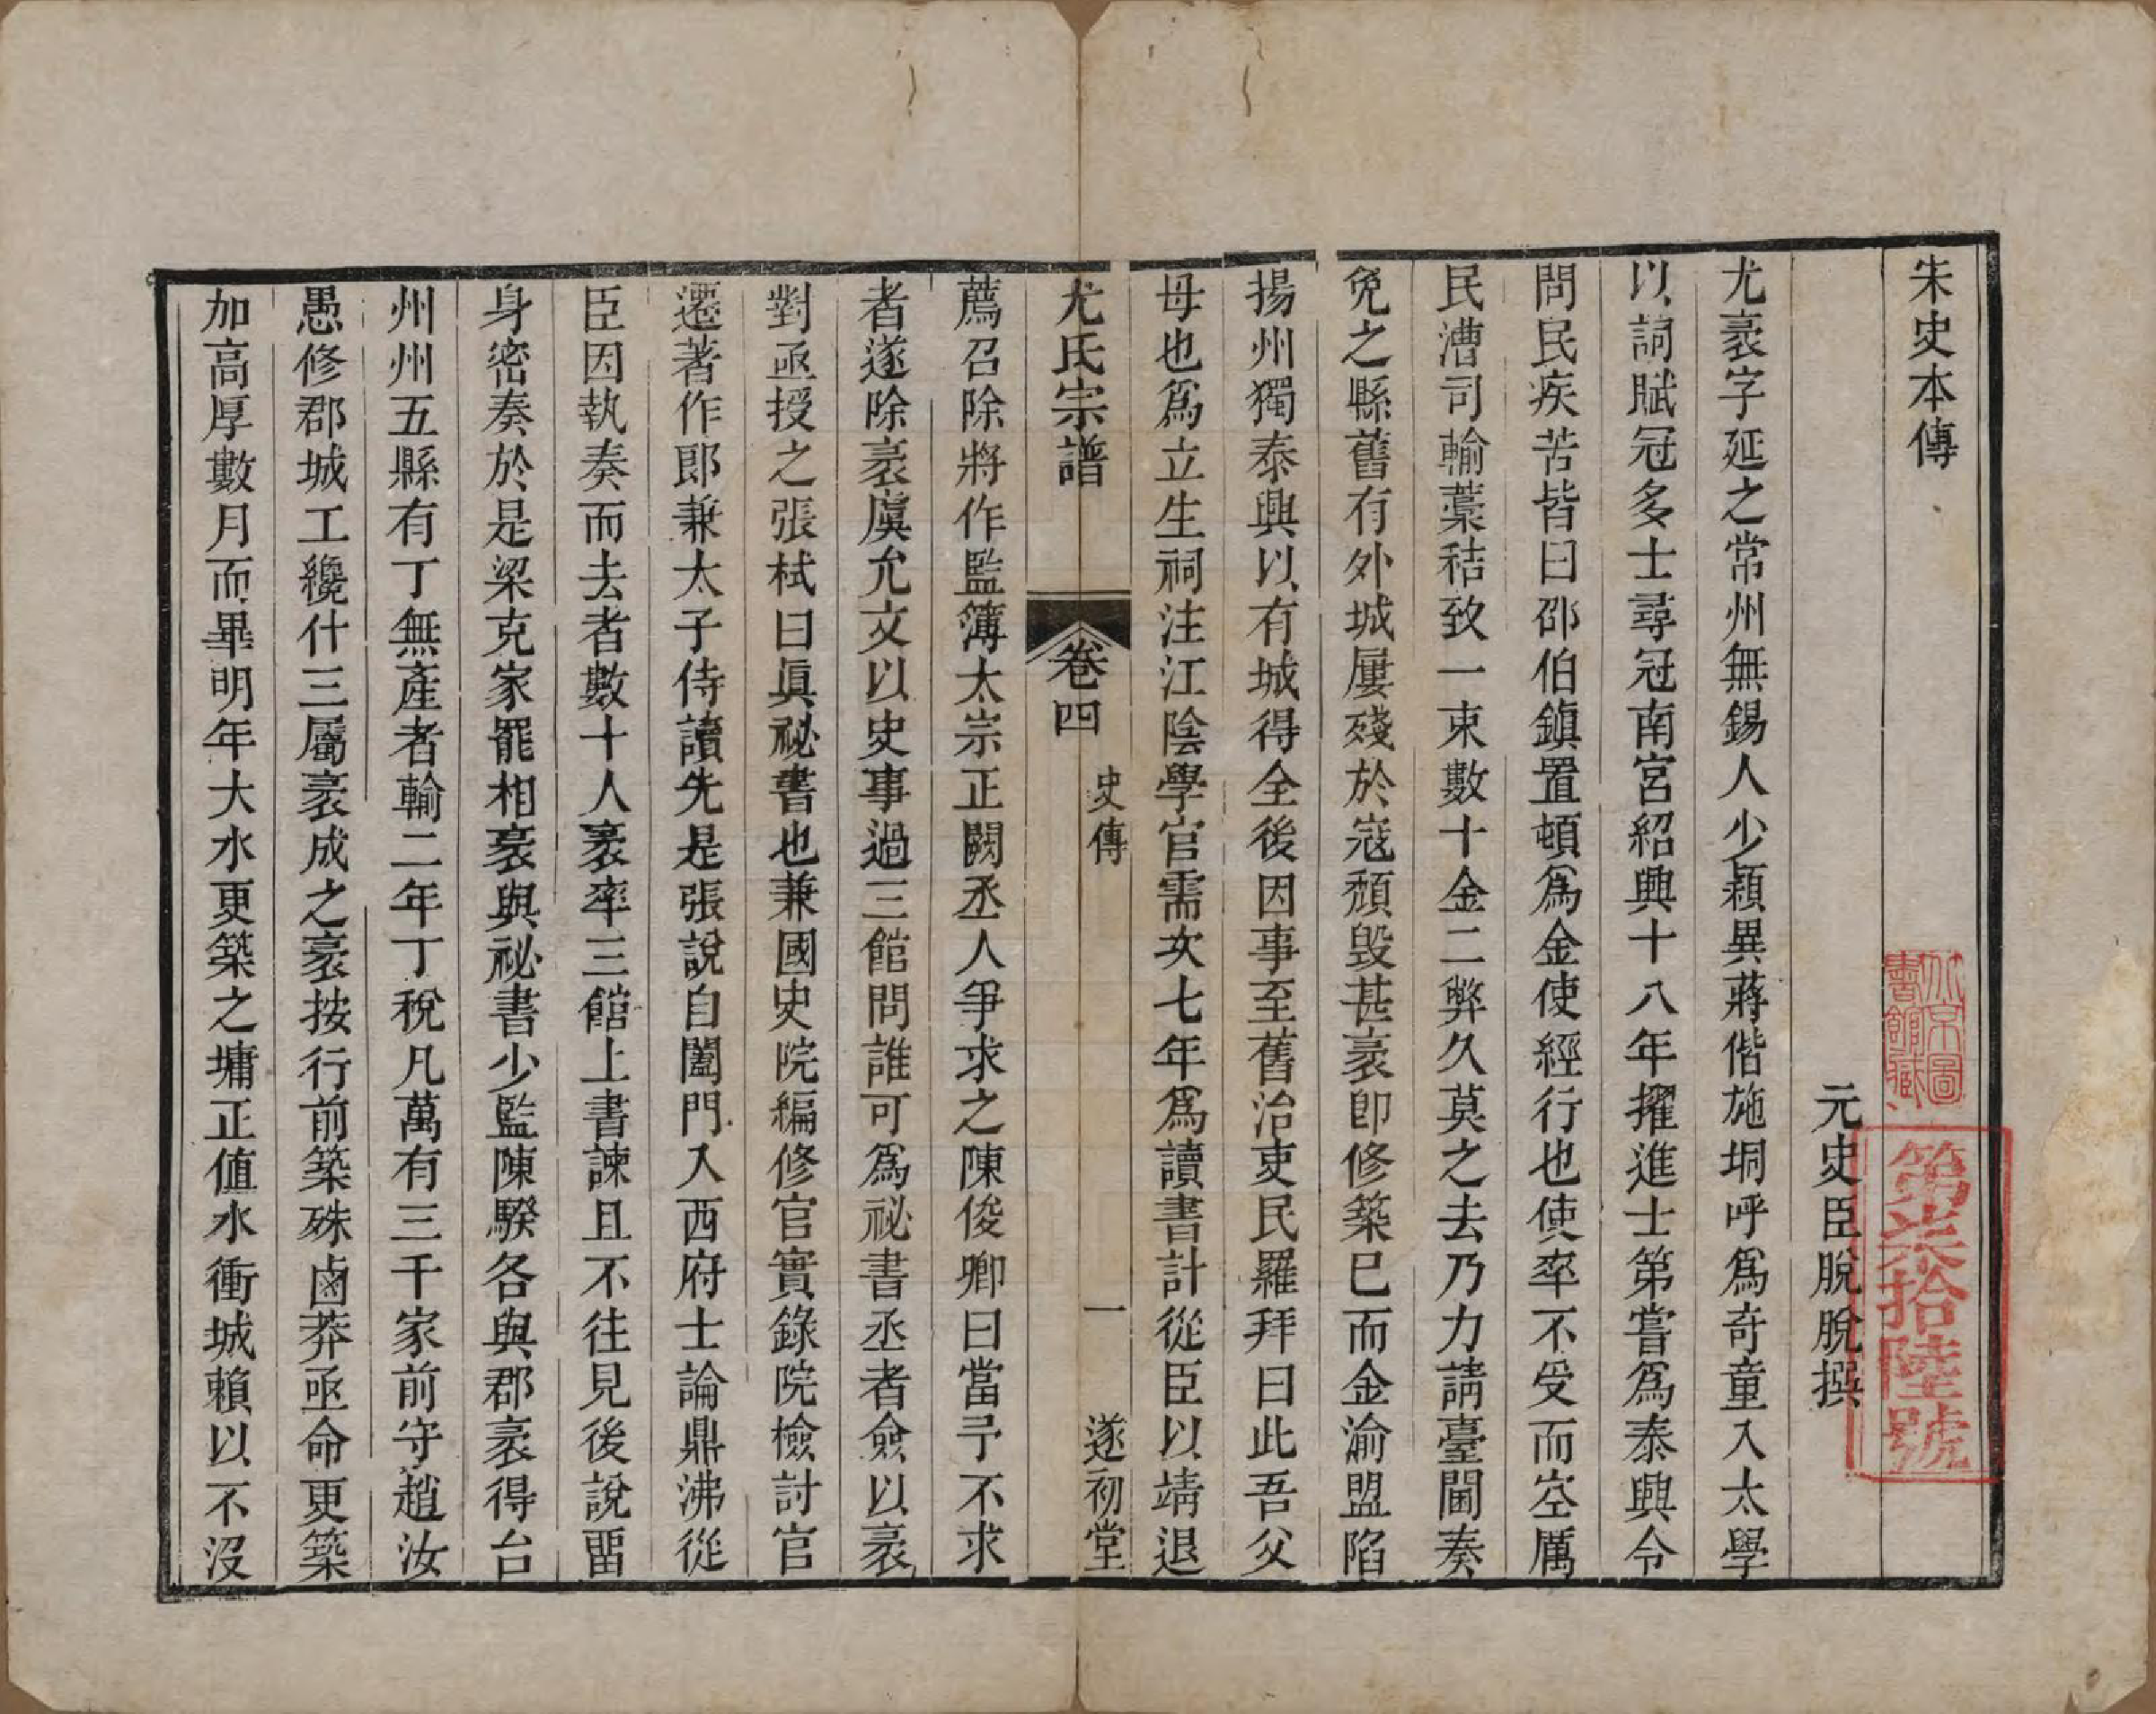 朱史本傳
元史臣脫脫撰
尤袤字延之常州無錫人少穎異蔣偕施坰呼爲奇童入太學
以詞賦冠多士尋冠南宮紹興十八年擢進士第嘗爲泰興令
問民疾苦皆曰邵伯鎮置頓爲金使經行也使率不受而空厲
民漕司輸藁秸致一束數十金二弊久莫之去乃力請臺閫奏
免之縣舊有外城屢殘於寇頹毀甚袤卽修築已而金渝盟陷
揚州獨泰興以有城得全後因事至舊治吏民羅拜曰此吾父
母也爲立生祠注江陰學官需次七年爲讀書計從臣以靖退
尤氏宗譜 卷四 史傳 一 遂初堂
薦召除將作監簿太宗正闕丞人爭求之陳俊卿曰當予不求
者遂除袤虞允文以史事過三館問誰可爲祕書丞者僉以袤
對亟授之張栻曰眞祕書也兼國史院編修官實錄院檢討官
遷著作郎兼太子侍讀先是張說自閤門入西府士論鼎沸從
臣因執奏而去者數十人袤率三館上書諫且不往見後說畱
身密奏於是梁克家罷相袤與祕書少監陳騤各與郡袤得台
州州五縣有丁無產者輸二年丁稅凡萬有三千家前守趙汝
愚修郡城工纔什三屬袤成之袤按行前築殊鹵莽亟命更築
加高厚數月而畢明年大水更築之墉正値水衝城賴以不沒
北京圖書館藏
第柒拾陸號